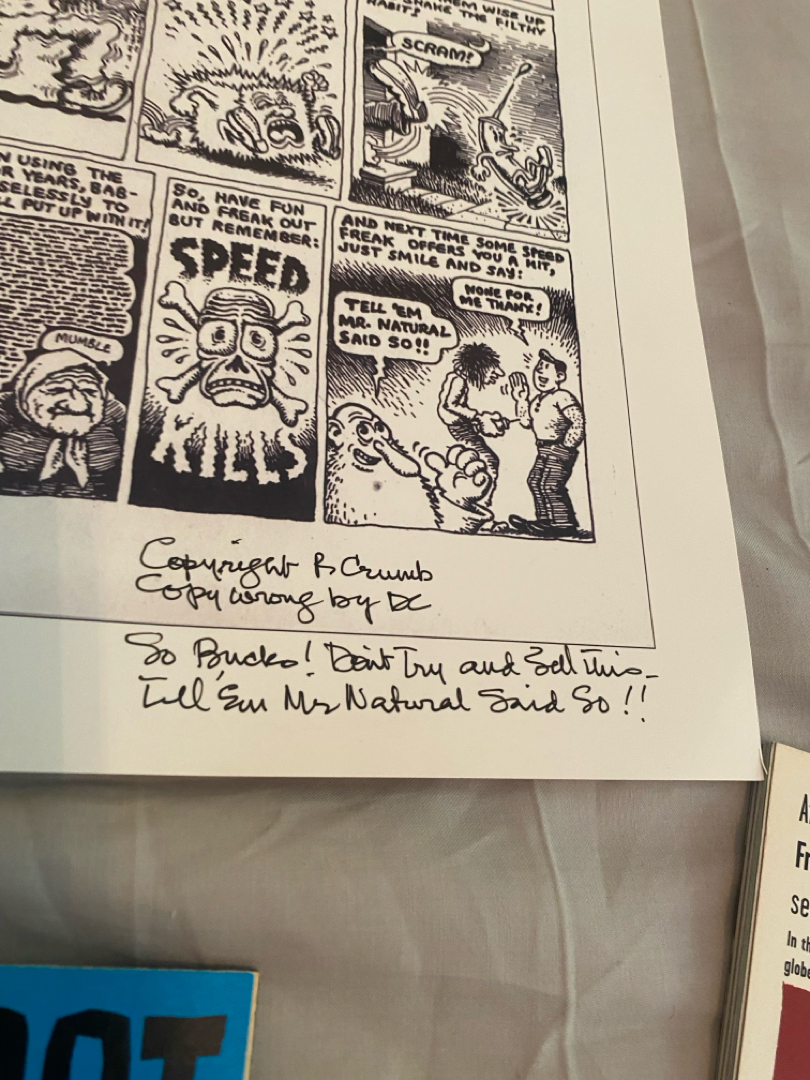 EM WISE UP
SHAKE THE FILTHY
HABITS
SCRAM!
N USING THE
R YEARS, BAB-
SELESSLY TO
LL PUT UP WITH IT!
MUMBLE
SO, HAVE FUN
AND FREAK OUT
BUT REMEMBER:
SPEED
KILLS
AND NEXT TIME SOME SPEED
FREAK OFFERS YOU A HIT,
JUST SMILE AND SAY:
NONE FOR
ME THANX!
TELL 'EM
MR. NATURAL
SAID SO!!
Copyright R Crumb
Copy wrong by DC
So Bucks! Don't Try and Sell This–
Tell 'Em Mr Natural Said So!!
A
Fr
se
In th
globe
OOT